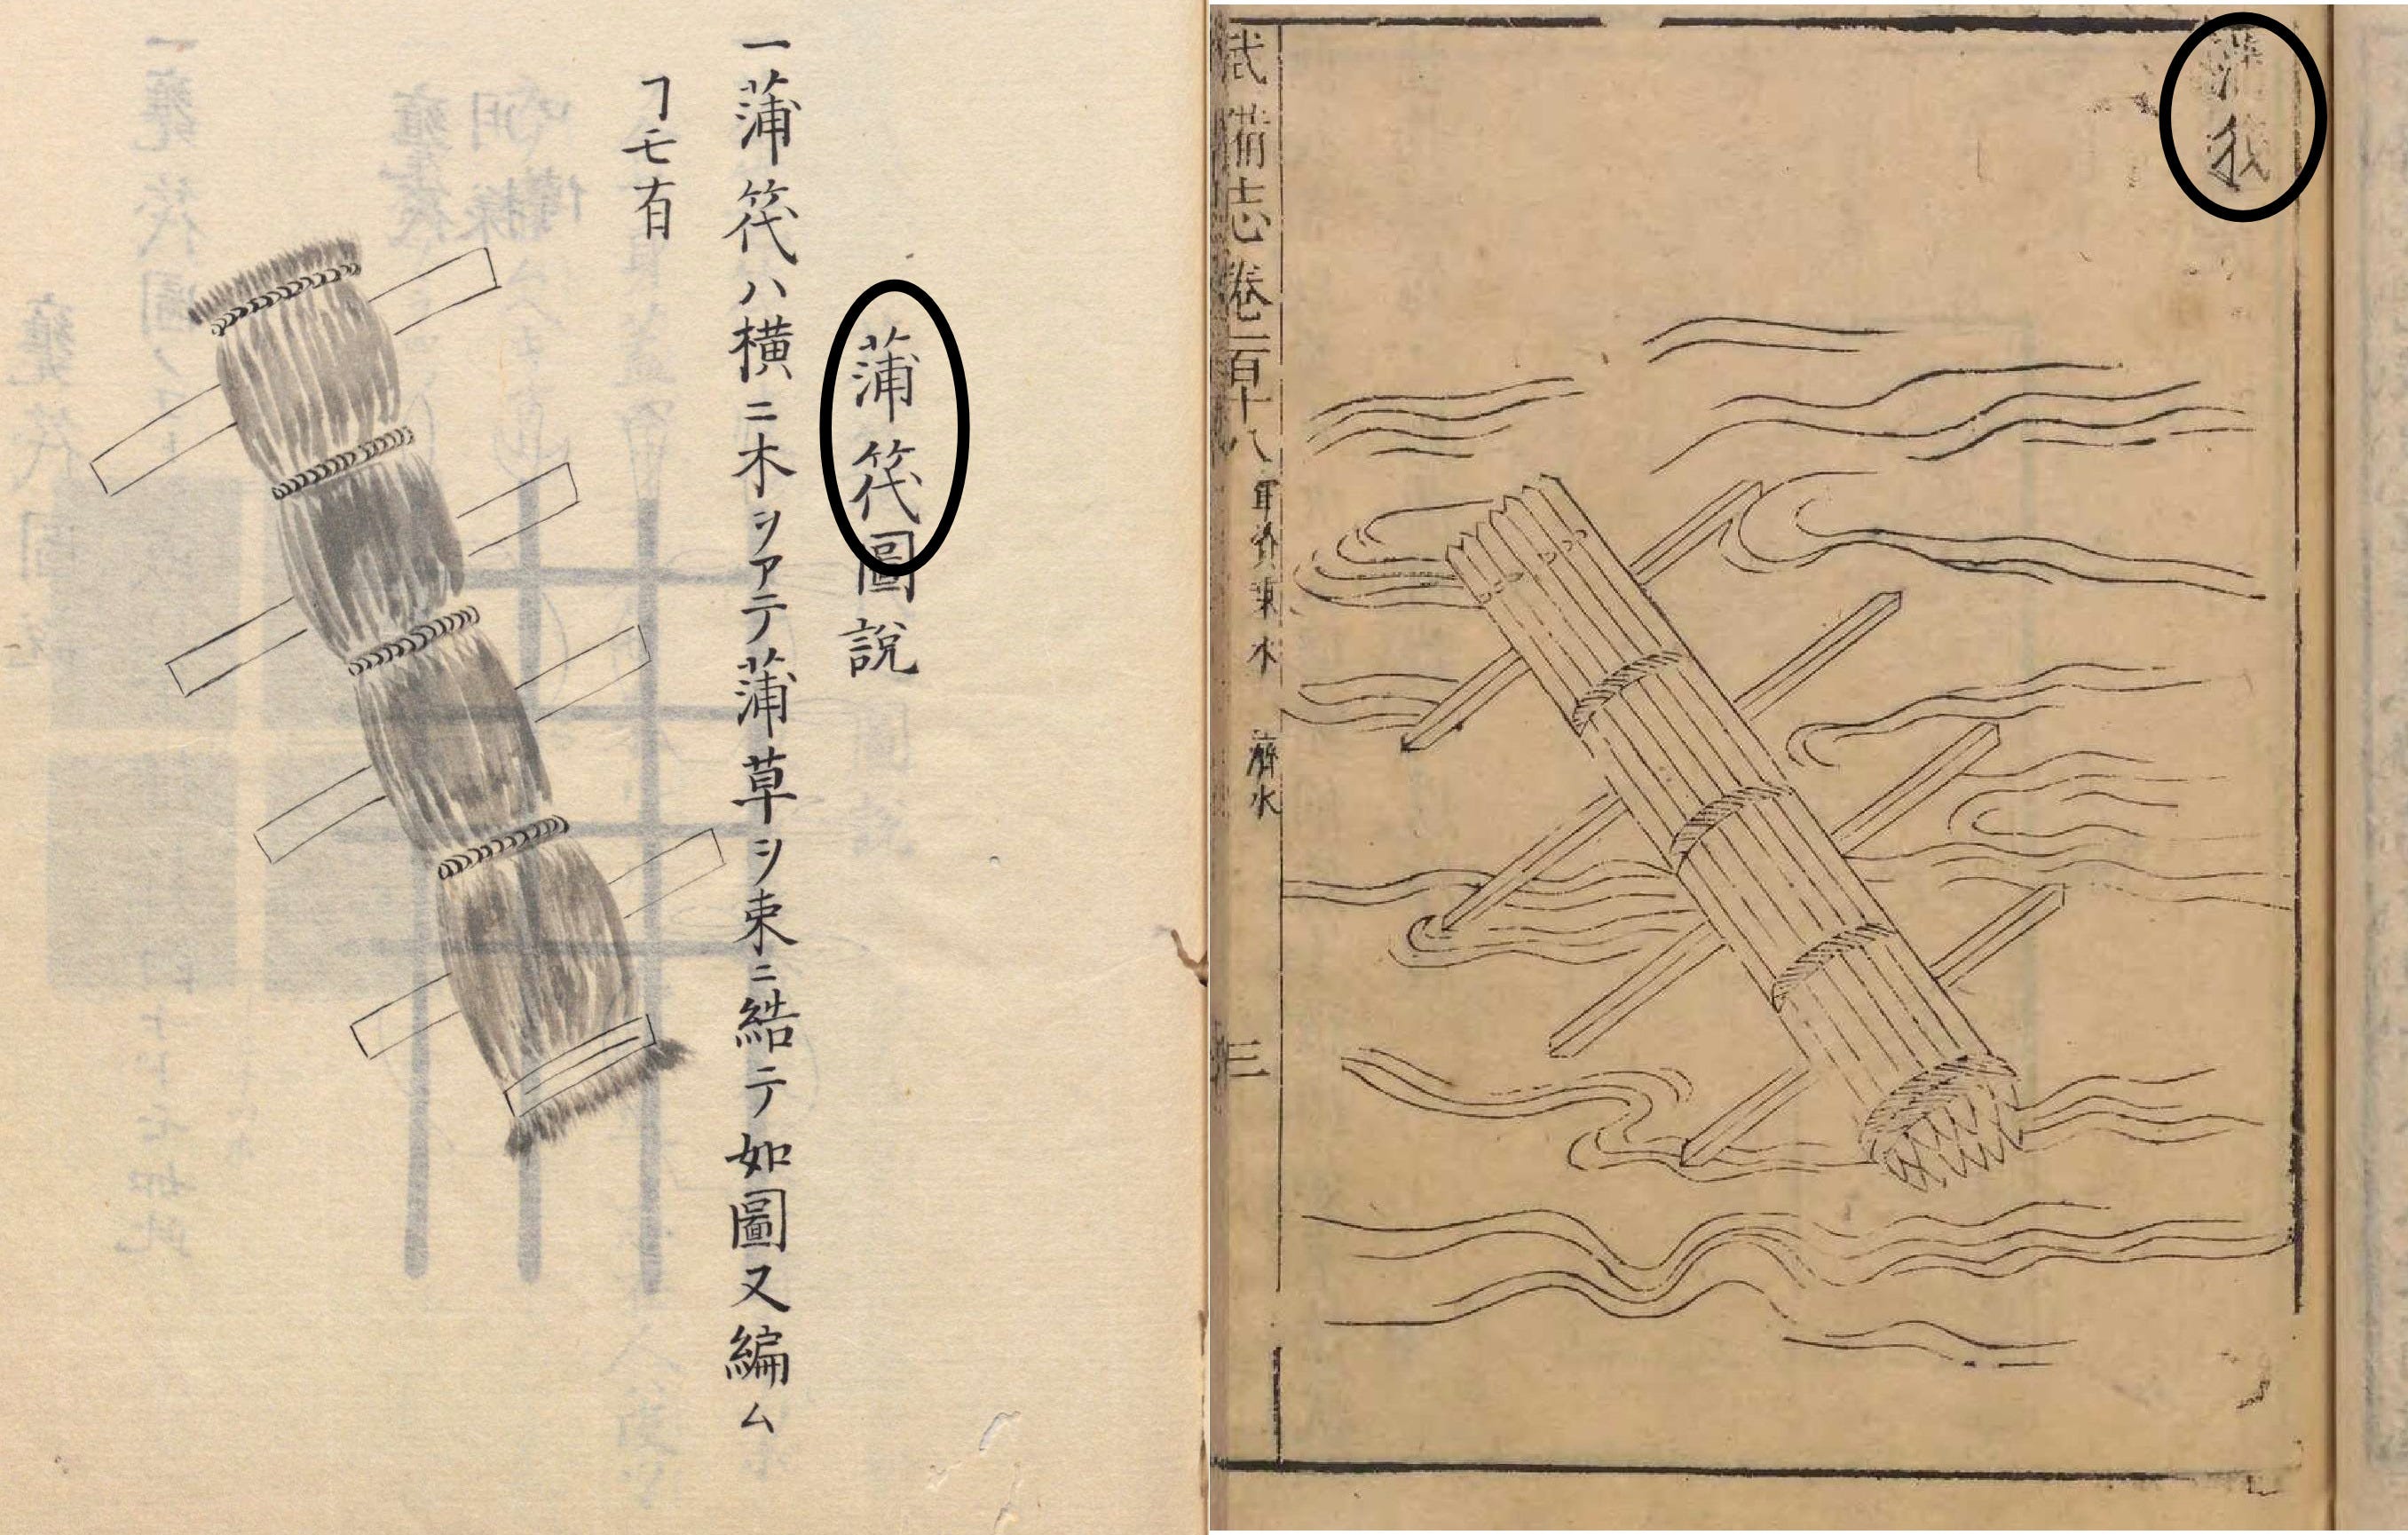 蒲筏圖說
一蒲筏ハ横ニ木ヲアテ蒲草ヲ束ニ結テ如圖又編ム
ヿモ有
蒲筏
武備志卷一百十八 軍資乗 水 濟水 三